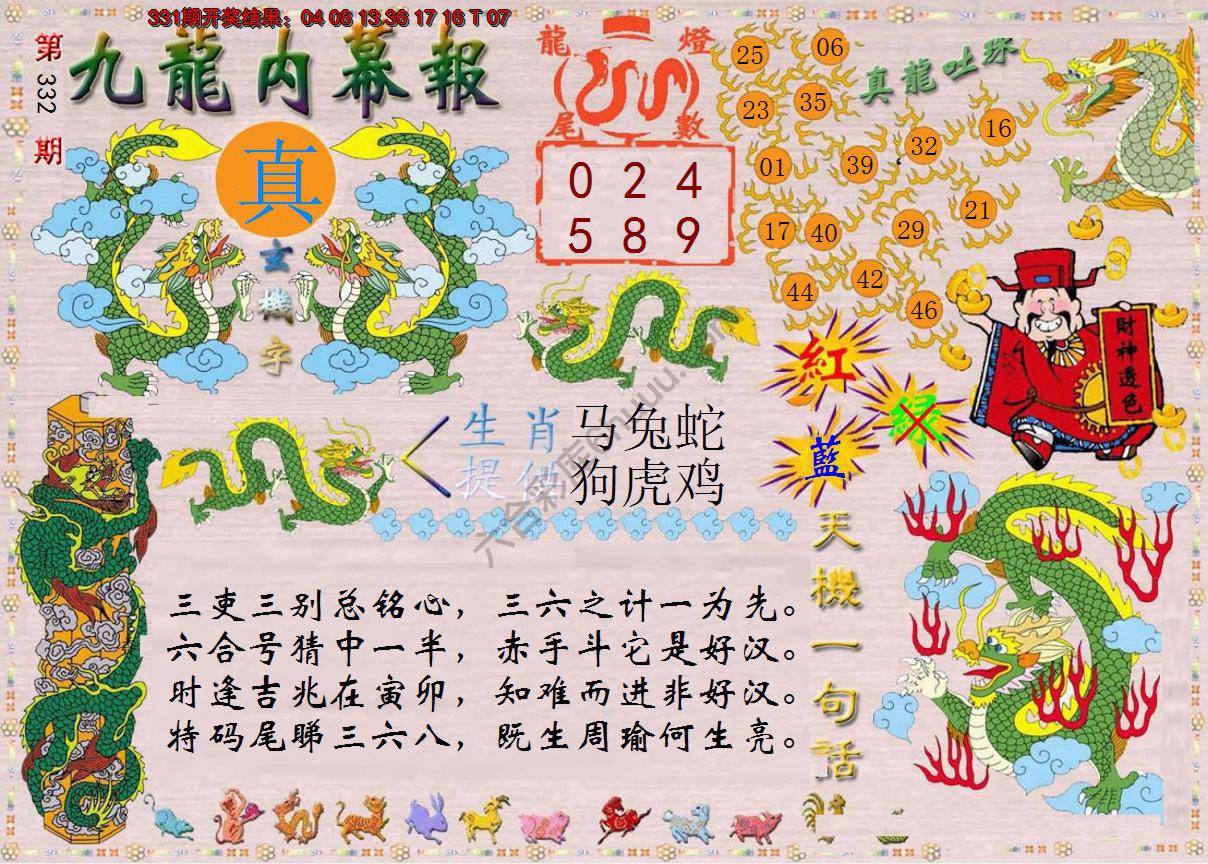 331期开奖结果：04 08 13 36 17 16 T 07
第332期
九龍内幕報
真
玄機字
龍燈
尾數
0 2 4
5 8 9
真龍吐珠
25
06
23
35
01
39
32
16
17
40
29
21
44
42
46
財神透色
紅
綠
藍
生肖
提供
马兔蛇
狗虎鸡
天機一句話
三吏三别总铭心，三六之计一为先。
六合号猜中一半，赤手斗它是好汉。
时逢吉兆在寅卯，知难而进非好汉。
特码尾睇三六八，既生周瑜何生亮。